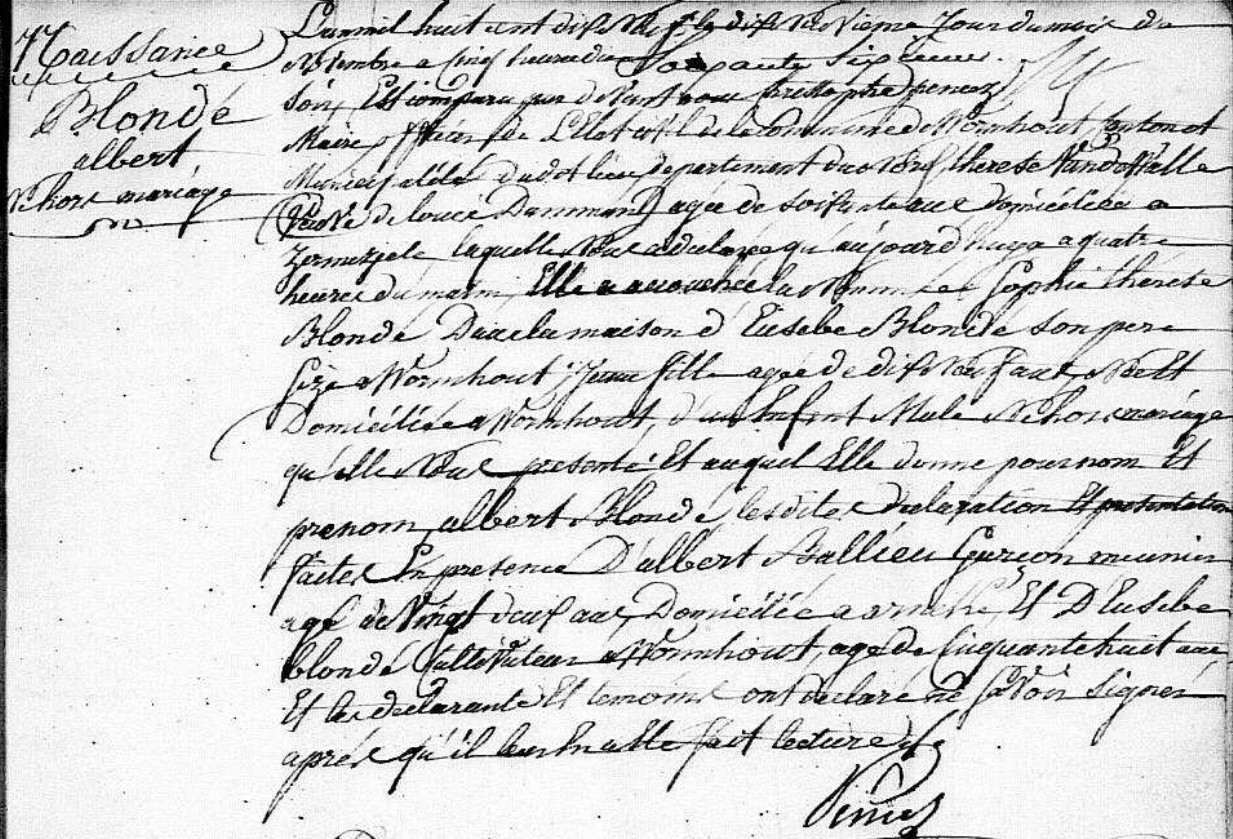 Naissance
Blondé
albert,
dehors mariage
L'an mil huit cent dix Neuf le dix Neuvieme Jour du mois de
Novembre a Cinq heures du Soixante Sixieme.
soir, Est comparu par devant nous
Maire officier de L'Etat civil de la Commune de Wormhout, canton et
Municipalité dudit lieu, departement du Nord, therese
(Veuve de Damman) agée de soixante ans domiciliée a
Zermezeele laquelle Nous a declarée qu'aujourd'huy a quatre
heures du matin, Elle a accouchée la Nommée Sophie therese
Blondé Dans la maison d'Eusebe Blondé son pere
size a Wormhout, Jeune fille agée de dix Neuf ans, Née Et
Domiciliée a Wormhout, d'un Enfant Male dehors mariage
qu'elle Nous presenté Et auquel Elle donne pour nom Et
prenom, albert Blondé, lesdites declaration Et presentation
faites En presence D'albert Ballieu Garçon meunier
agé de Vingt deux ans, Domicilié a Et D'Eusebe
blondé Cultivateur a Wormhout, agé de Cinquante huit ans
Et les declarante Et temoins ont declaré ne savoir signer
aprés qu'il leur En atté fait lecture